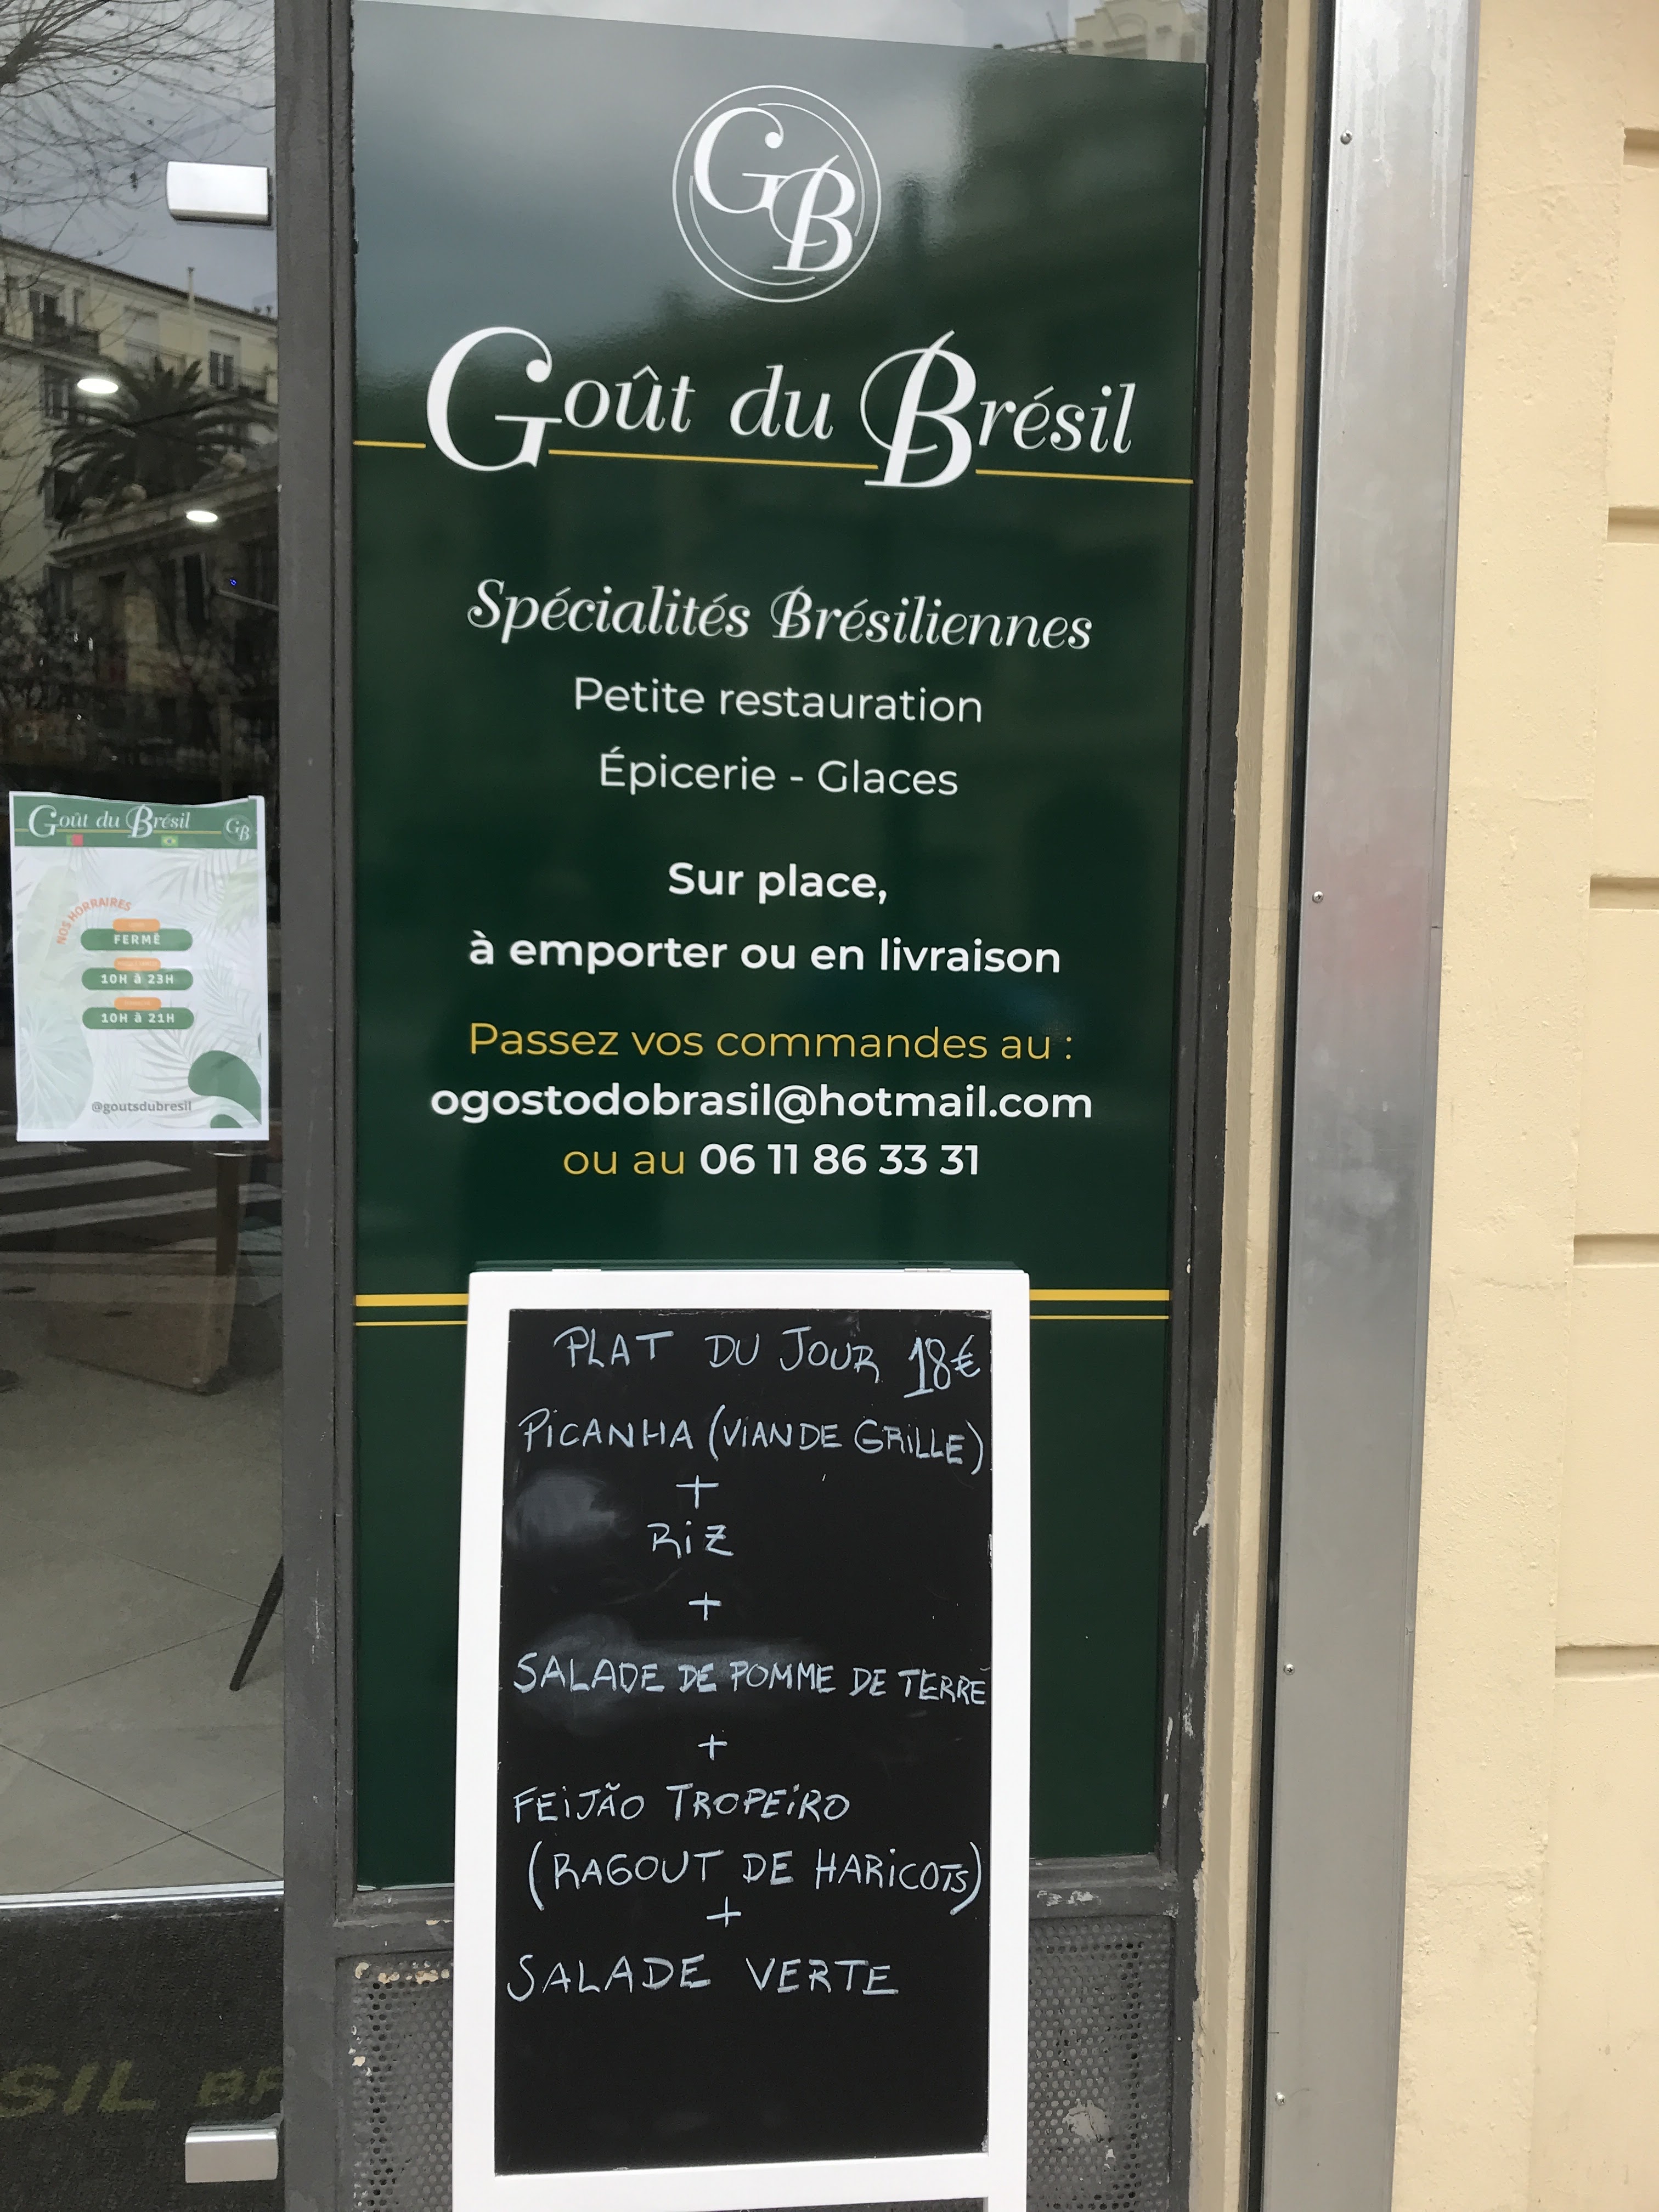 GB
Goût du Brésil
Spécialités Brésiliennes
Petite restauration
Épicerie - Glaces
Sur place,
à emporter ou en livraison
Passez vos commandes au :
ogostodobrasil@hotmail.com
ou au 06 11 86 33 31
PLAT DU JOUR 18€
PICANHA (VIANDE GRILLE)
+
RIZ
+
SALADE DE POMME DE TERRE
+
FEIJÃO TROPEIRO
(RAGOUT DE HARICOTS)
+
SALADE VERTE
Goût du Brésil GB
NOS HORRAIRES
FERMÉ
10H à 23H
10H à 21H
@goutsdubresil
SIL BR